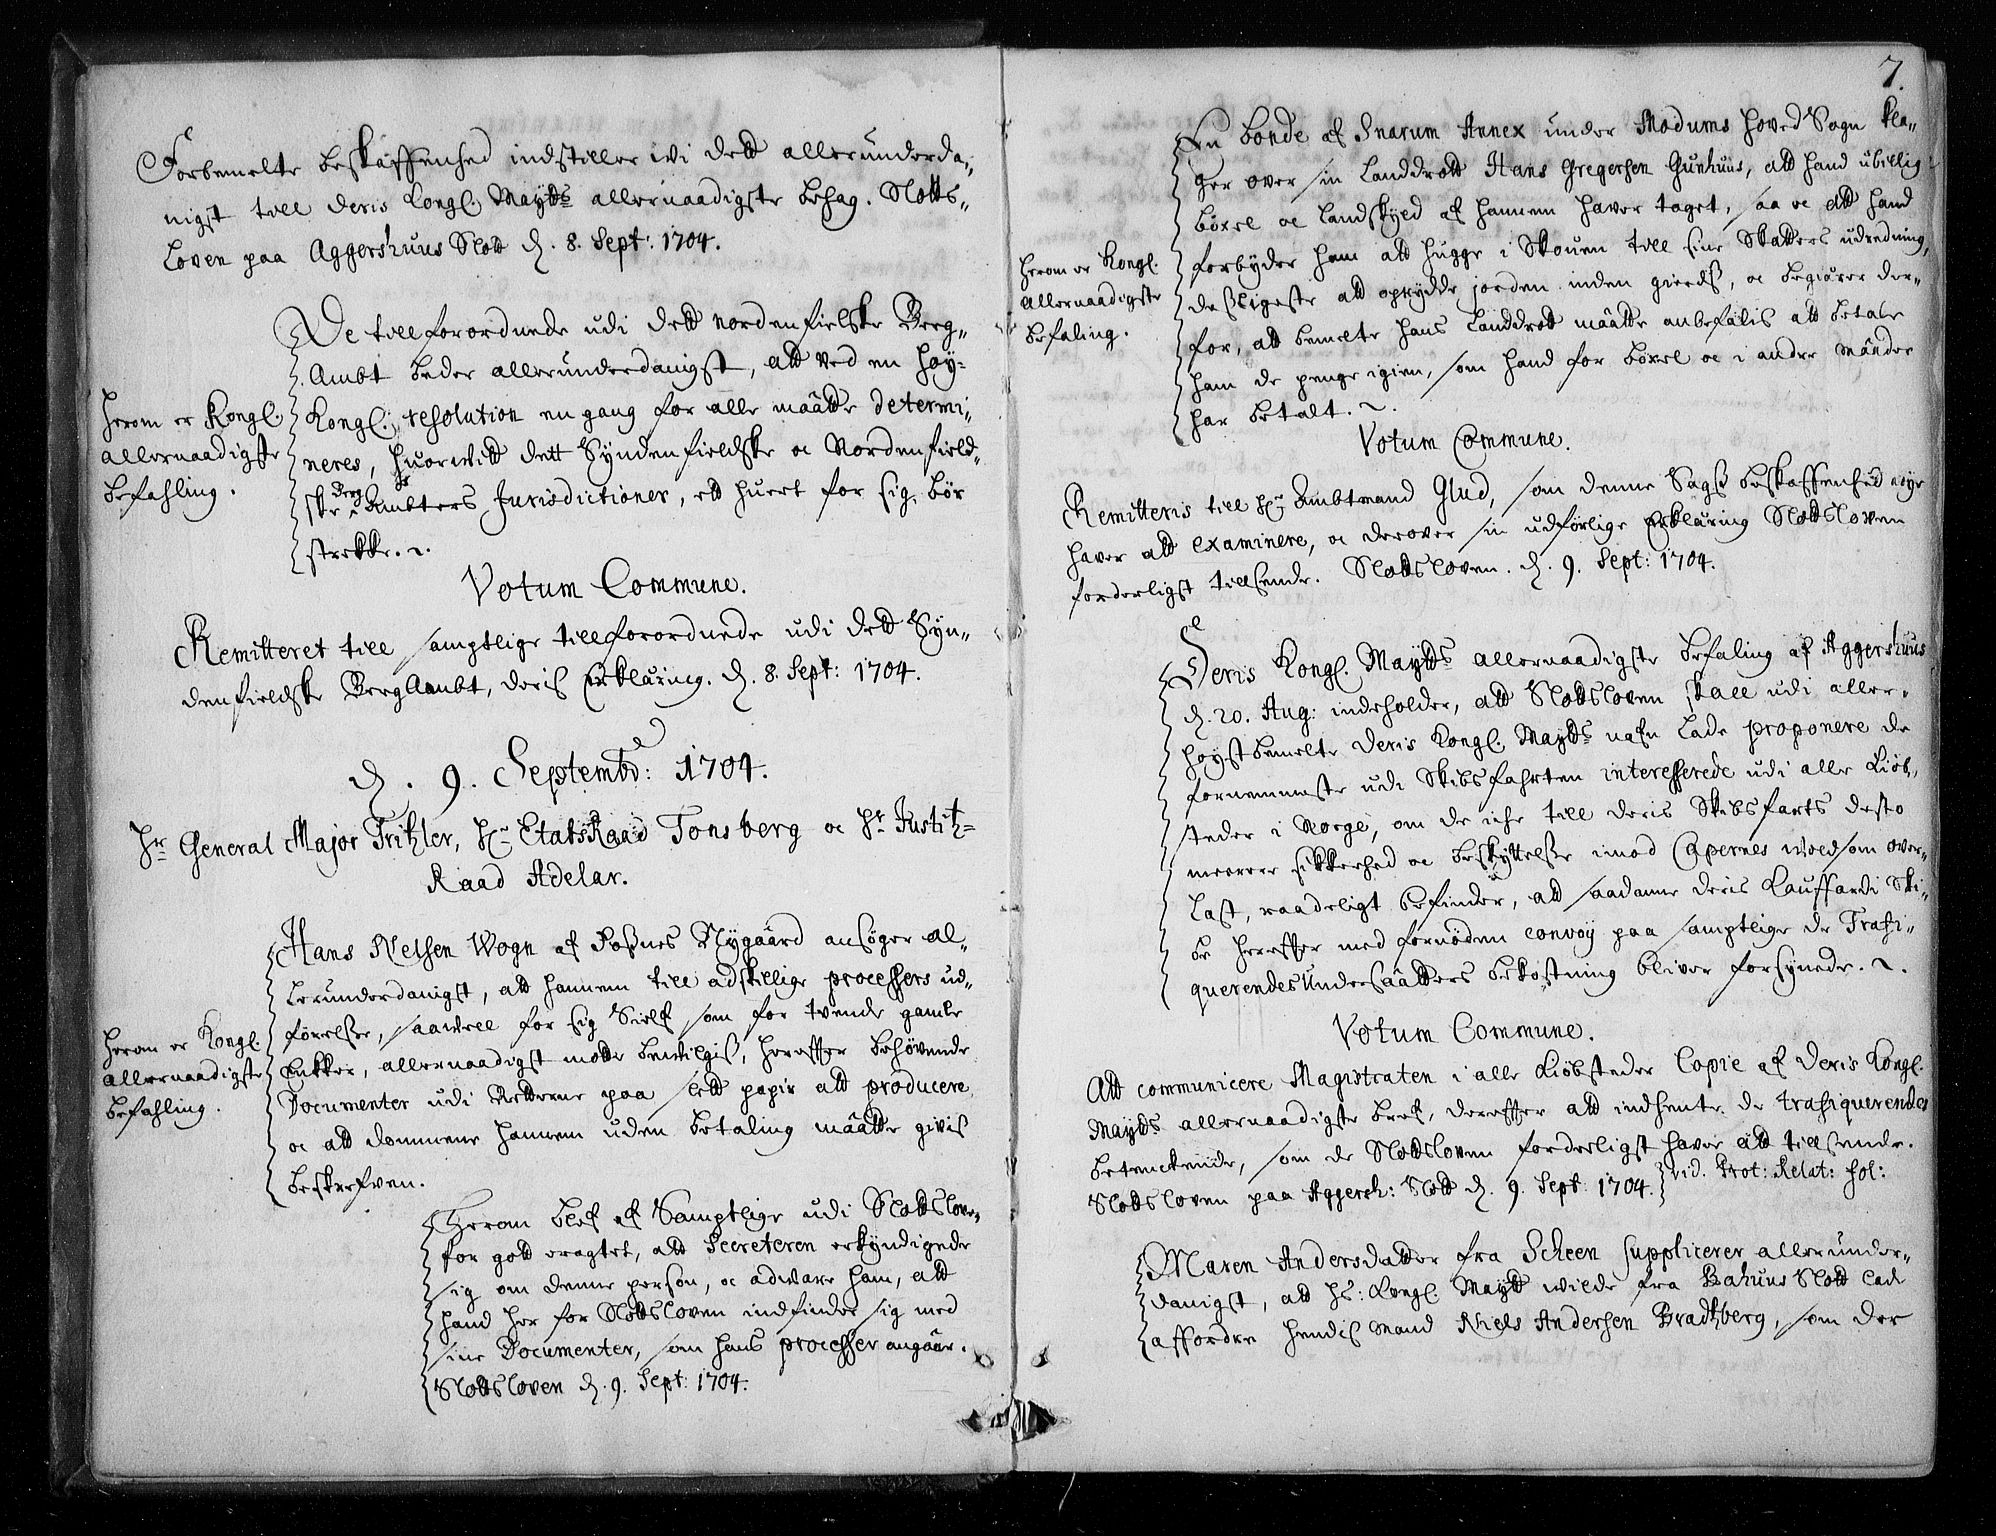 Forbemelte beskaffenhed indstiller wi dett allerunderda-
nigst till deris Kongl. Mayts allernaadigste behag. Slotts-
Loven paa Aggershuus Slott d. 8. Sept: 1704.
De tillforordnede udi dett nordenfielske Berg-
Ambt beder allerunderdanigst, att ved en høy-
Herom er Kongl.
allernaadigste
befahling.
Kongl: resolution en gang for alle maatte determi-
neres, huorwitt dett Syndenfieldske oc Nordenfield-
ske Berg Ambters Jurisdictioner, ett huert for sig, bør
strekke. 
Votum Commune.
Remitteret till samptlige tillforordnede udi dett Syn-
denfieldske BergAmbt, deris Erklæring. d. 8. Sept: 1704.
d. 9. Septembr: 1704.
Hr General Major Tritzler, Hr EtatsRaad Tonsberg oc Hr Justitz-
Raad Adelar.
Hans Nelsen Wogn af Foßnes Nygaard ansøger al-
lerunderdanigst, att hannem till adskillige processers ud-
førelse, saawell for sig Sielf som for tvende gamle
Herom er Kongl.
allernaadigste
befahling.
Enkker, allernaadigst motte bewilgis, hereffter behøvende
Documenter udi Retterne paa slett papir att producere,
oc att dommene hannem uden betaling maatte givis
beskrefven.
Herom blef af Samptlige udi Slottslove-
for gott eragtet, att Secreteren erkyndigede
sig om denne person, oc adware ham, att
hand her for Slottsloven indfinder sig med
sine Documenter, som hans processer angaar.
Slottsloven d. 9. Sept: 1704.
7.
En bonde af Snarum Annex under Modums hoved Sogn kla-
ger over sin Landdrott Hans Gregersen Gunhuus, att hand ubillig
bøxel oc Landskyld af hannem haver taget, saa oc att hand
Herom er Kongl.
allernaadigste
befaling.
forbyder ham att hugge i Skouen till sine Skatters udredning,
deßligeste att oprydde jorden inden gierdß, oc begiærer der-
for, att bemelte hans Landdrott maatte anbefalis att betale
ham de penge igien, som hand for bøxel oc i andre maader
har betalt. 
Votum Commune.
Remitteris till Hr Ambtmand Glud, som denne Sagß beskaffenhed nøye
haver att examinere, oc derover sin udførlige Erklæring Slottsloven
forderligst tillsende. Slottsloven. d. 9. Sept: 1704.
Deris Kongl. Mayts allernaadigste befaling af Aggershuus
d. 20. Aug: indeholder, att Slottsloven skall udi aller-
høystbemelte Deris Kongl. Mayts nafn lade proponere de
fornemmeste udi Skibsfahrten interesserede udi alle Kiøb-
steder i Norge, om de iche till deris Skibsfarts desto
meerer sikkerhed oc beskyttelße imod Capernes woldsom over-
last, raadeligt befinder, att saadanne deris Kauffardi Ski-
be hereffter med fornøden convoy paa samptlige de Trafi-
querendes Undersaatters bekostning bliver forsynede. 
Votum Commune.
Att communicere Magistraten i alle Kiøbsteder Copie af Deris Kongl.
Mayts allernaadigste bref, dereffter att indhente de trafiquerendes
betenckende, som de Slottsloven forderligst haver att tillsende.
Slottsloven paa Aggersh: Slott d. 9. Sept 1704. vid. Prot: Relat: fol:
Maren Andersdatter fra Scheen supplicerer allerunder-
danigst, att Hs: Kongl. Mayts wilde fra Bahuus Slott lade
affordre hendis mand Niels Andersen Bradtberg, som der